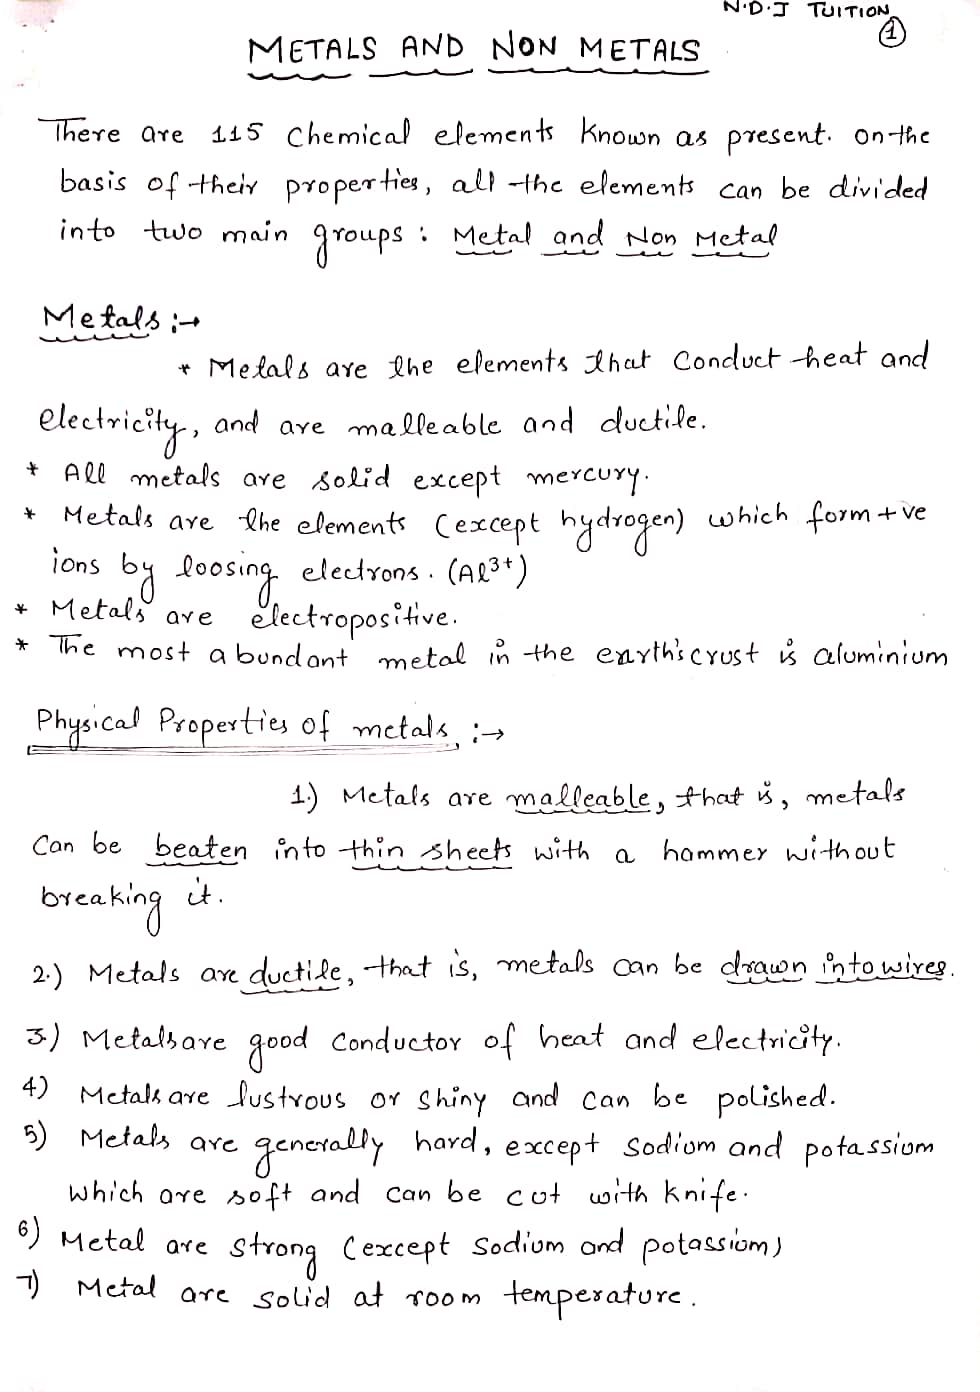 N.D.J TUITION
1
METALS AND NON METALS
There are 115 Chemical elements known as present. On the
basis of their properties, all the elements can be divided
into two main groups : Metal and Non Metal
Metals :→
* Metals are the elements that Conduct heat and
electricity, and are malleable and ductile.
* All metals are solid except mercury.
* Metals are the elements (except hydrogen) which form +ve
ions by loosing electrons. (Al3+)
* Metals are electropositive.
* The most abundant metal in the earth's crust is aluminium
Physical Properties of metals :→
1.) Metals are malleable, that is, metals
Can be beaten into thin sheets with a hammer without
breaking it.
2.) Metals are ductile, that is, metals can be drawn into wires.
3.) Metals are good Conductor of heat and electricity.
4) Metals are lustrous or shiny and can be polished.
5) Metals are generally hard, except sodium and potassium
which are soft and can be cut with knife.
6) Metal are strong (except sodium and potassium)
7) Metal are solid at room temperature.